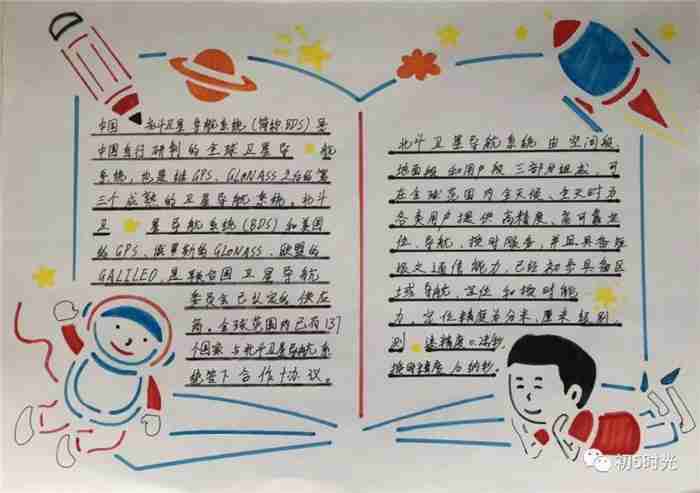 中国 北斗卫星导航系统(简称BDS)是
中国自行研制的全球卫星导 航
系统,也是继GPS、GLONASS之后的第
三个成熟的卫星导航系统。北斗
卫 星导航系统(BDS)和美国
的GPS、俄罗斯的GLONASS、欧盟的
GALILEO,是联合国卫星导航
委员会已认定的供应
商。全球范围内已有137
个国家与北斗卫星导航系
统签下合作协议。
北斗卫星导航系统由空间段、
地面段和用户段三部分组成,可
在全球范围内全天候、全天时为
各类用户提供高精度、高可靠定
位、导航、授时服务,并且具备短
报文通信能力,已经初步具备区
域导航、定位和授时能
力,定位精度为分米、厘米级别,
测 速精度0.2米/秒,
授时精度10纳秒。
初5时光